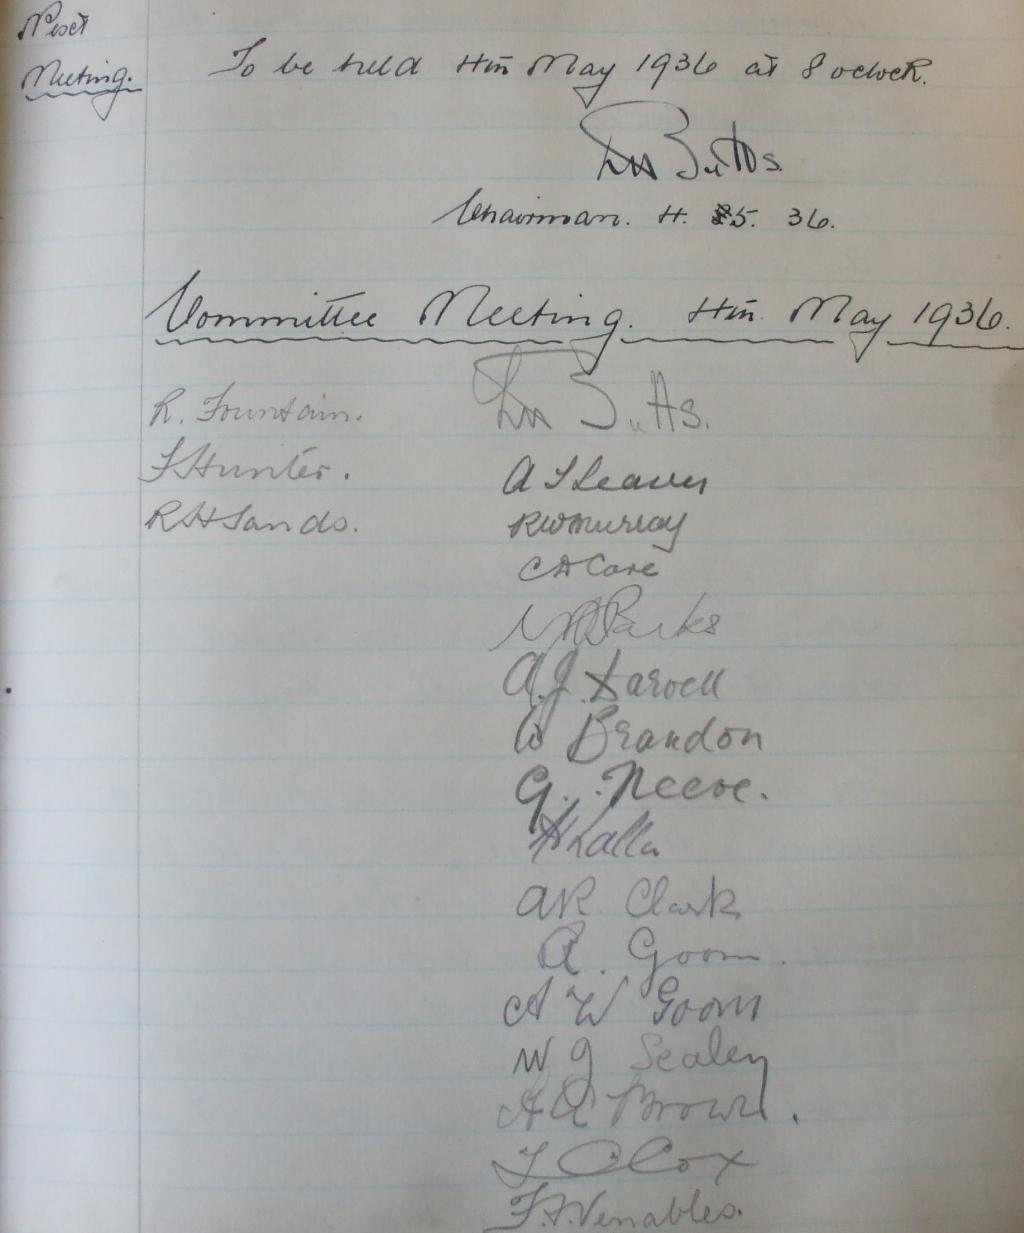 Next
Meeting. To be held 4th May 1936 at 8 oclock.
Butts.
Chairman. 4. 5. 36.
Committee Meeting. 4th May 1936.
R. Fountain. Butts.
F Hunter. A F Leaver
R H Sands. R W Murray
C A Care
Parks
A. J. Darvell
W Brandon
G. Neeve.
A R Clark
A. Goom.
A W Goom
W J Sealey
A A Brown.
F C Cox
F. F. Venables.